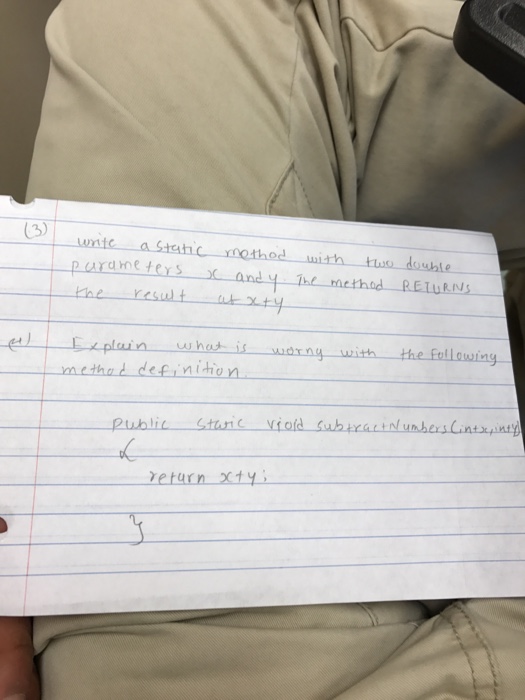 (3) write a static mothod with two double
parameters x and y The method RETURNS
the result at x+y
Explain what is worng with the following
method definition.
public static viold subtractNumbers(int x, int y)
{
return x+y;
}